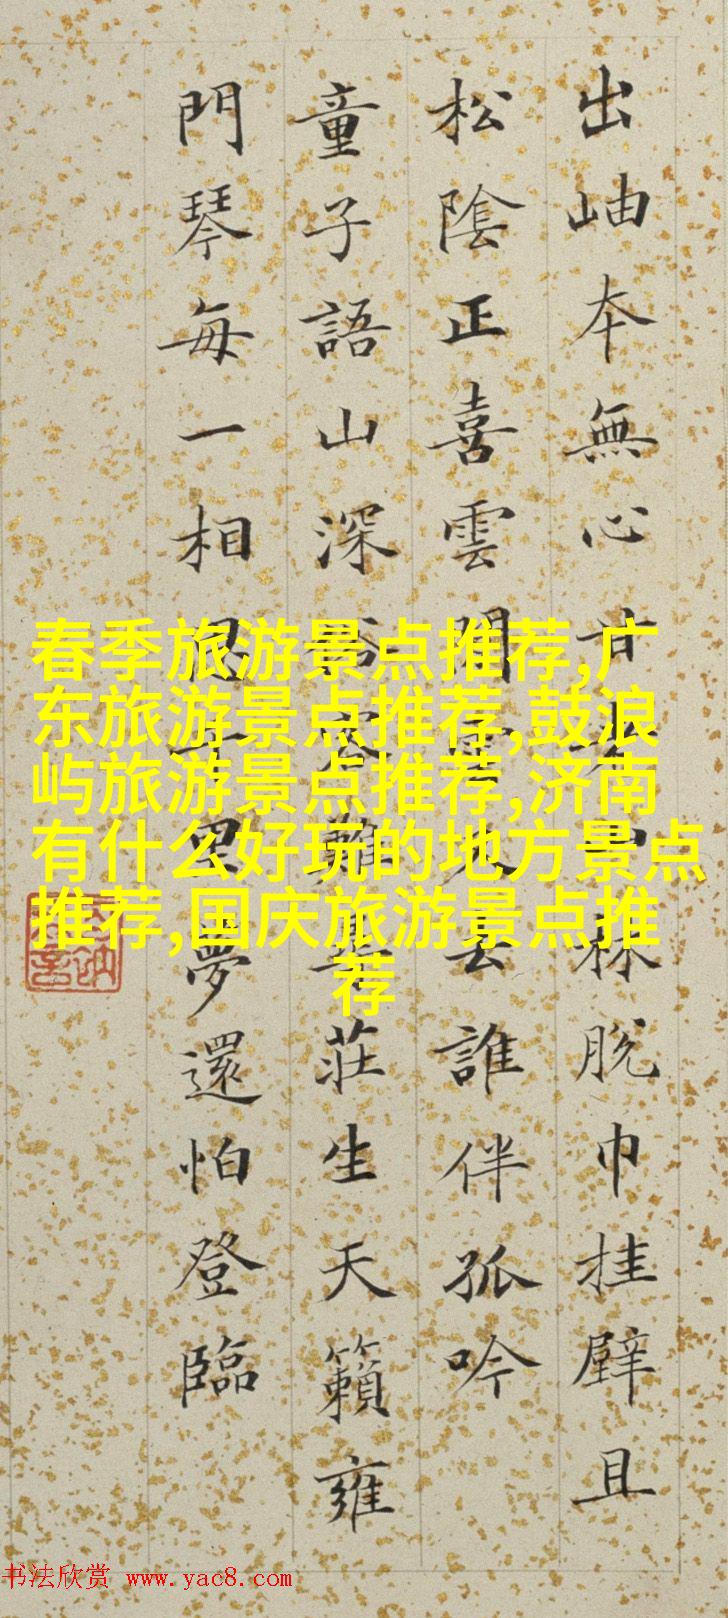 出岫本無心甘老林脫巾挂壁且
松陰正喜雲閒雲去誰伴孤吟
童子語山深難尋莊生天籟雍
門琴每一相思千里夢還怕登臨
春季旅游景点推荐,广
东旅游景点推荐,鼓浪
屿旅游景点推荐,济南
有什么好玩的地方景点
推荐,国庆旅游景点推
荐
书法欣赏 www.yac8.com